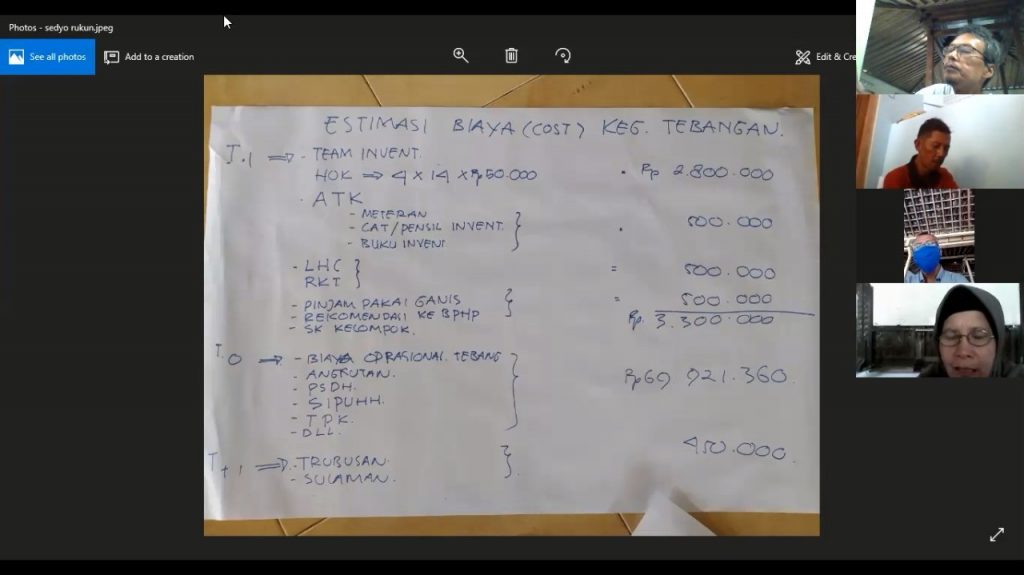 Photos - sedyo rukun.jpeg
See all photos
Add to a creation
Edit & Cre
ESTIMASI BIAYA (COST) KEG. TEBANGAN.
T.1 ⇒ - TEAM INVENT.
HOK ⇒ 4 X 14 X Rp50.000 . Rp 2.800.000
. ATK
- METERAN
- CAT/PENSIL INVENT. . 500.000
- BUKU INVENT
- LHC = 500.000
RKT
- PINJAM PAKAI GANIS = 500.000
- REKOMENDASI KE BPHP Rp. 3.300.000
- SK KELOMPOK.
T.0 ⇒ - BIAYA OPRASIONAL TEBANG
- ANGKUTAN. Rp69 921.360.
- PSDH.
- SIPUHH.
- TPK.
- DLL.
T+1 ⇒ - TRUBUSAN 450.000.
- SULAMAN.